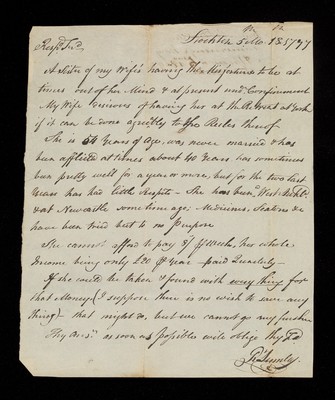 Stockton 5 Mo. 18th 1797
Respd Frd.
A Sister of my Wife's having the Misfortune to be at
times out of her Mind & at present undr. Confinement
My Wife desirous of having her at the Retreat at York
if it can be done agreeably to the Rules thereof
She is 54 Years of Age, was never married & has
been afflicted at times about 40 Years, has sometimes
been pretty well for a year or more, but for the two last
Years has had little Respite - She has been
& at Newcastle some time ago; Medicines, Seatons &c
have been tried but to no purpose
She cannot afford to pay Week, her whole
Income being only £20 Year - paid Quarterly -
If she could be taken & found with every thing for
that Money (I suppose there is no wish to save any
thing) - that might do, but we cannot go any further
Thy Ansr. as soon as possible will oblige thy Fd
R Lumley